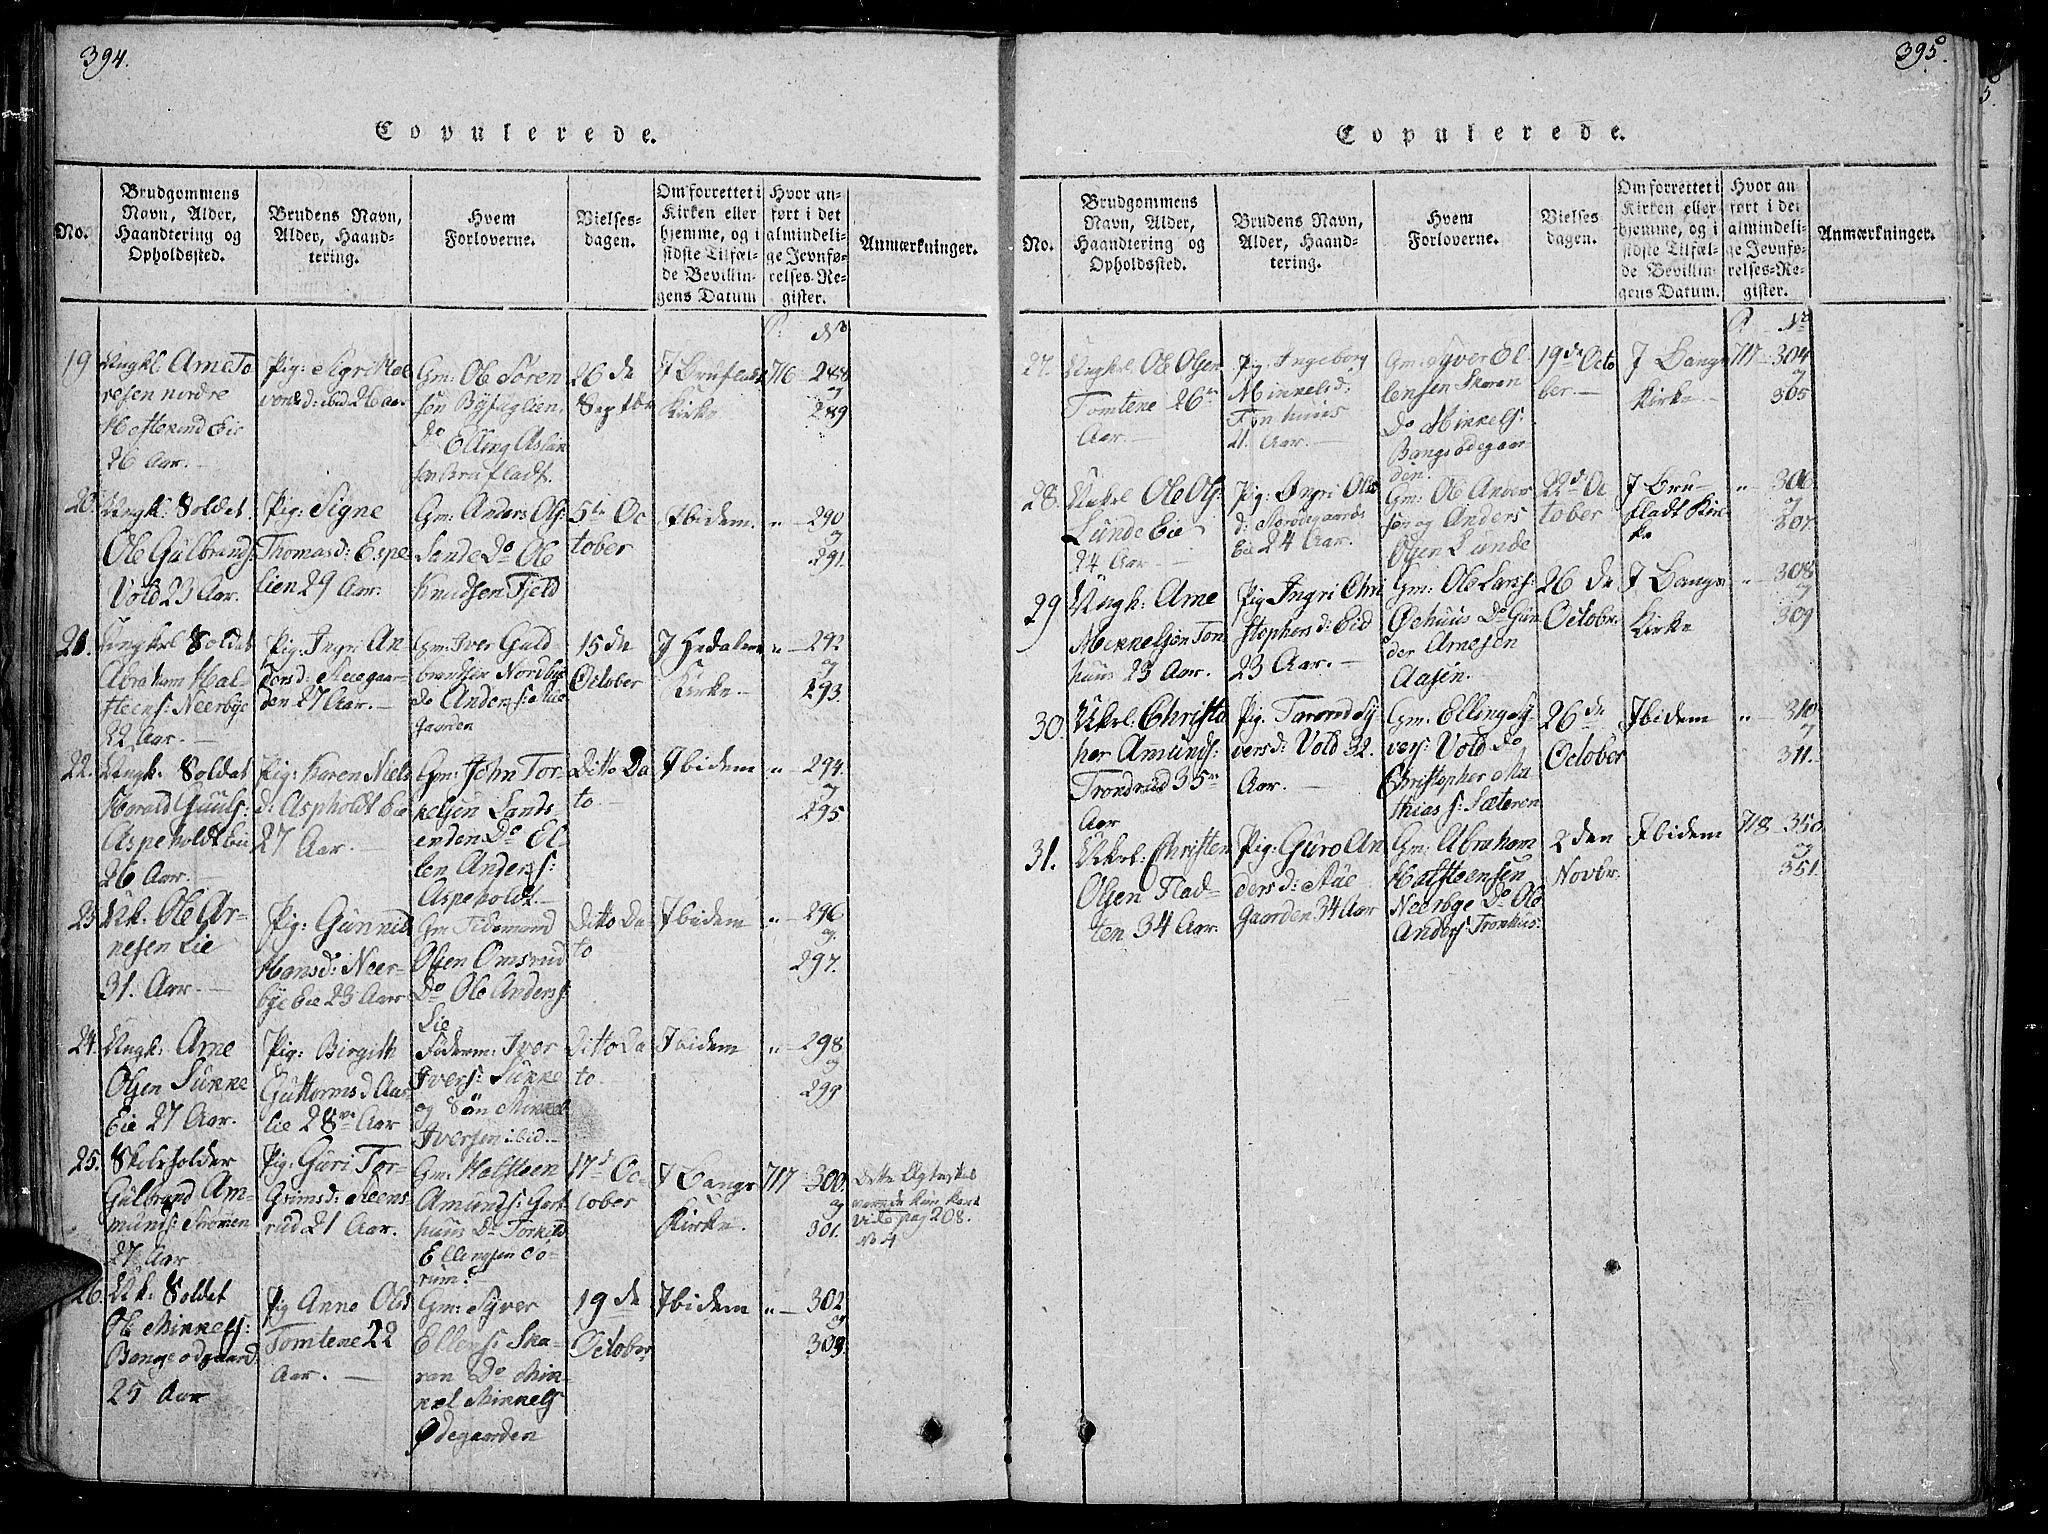 394.
Copulerede.
No.
Brudgommens
Navn, Alder,
Haandtering og
Opholdssted.
Brudens Navn,
Alder, Haand-
tering.
Hvem
Forloverne.
Vielses-
dagen.
Om forrettet i
Kirken eller
hjemme, og i
sidste Tilfæl-
de Bevillin-
gens Datum
Hvor an-
ført i det
almindeli-
ge Jevnfø-
relses-Re-
gister.
Anmærkninger.
19
Ungkl Arne To
resen nordre
Hefte Eie
26 Aar.
Pig: Sigri Hal
vorsd: ibid 26 aar
Gm: Ole Søren
sen Byfuglien
Do Elling Aslak
sen Brufladt.
26 de
Septbr
I Bruflads
Kirke
716 - 288
og
289
20.
Ungk. Soldat
Ole Gulbrands:
Vold 23 Aar.
Pig: Signe
Thomasd: Espe
lien 29 Aar.
Gm: Anders Ols:
Sande Do Ole
Knudsen Fjeld
5te Oc
tober
Ibidem.
" - 290
og
291.
21.
Ungkrl Soldat
Abraham Hal
steens: Neerbye
22 Aar.
Pig: Ingri An
dersd: Stuegaar
den 27 Aar.
Gm: Iver Guld
brandsen Nordbye
Do Anders: Stue
gaarden
15 de
October
I Hedalens
Kirke
" - 292
og
293.
22.
Ungk. Soldat
Harald Guuls:
Aspeholdt Eie
26 Aar.
Pig: Karen Niels
d: Aspholdt Eie
27 Aar.
Gm: John Tor-
kelsen Lands
enden Do El-
len Anders:
Aspeholdt.
Ditto Da
to
Ibidem
" - 294.
og
295
23
Uk. Ole Ar-
nesen Lie
31. Aar.
Pig: Gunnild
Hansd: Neer-
bye Eie 23 Aar
Gm Tidemand
Olsen Omsrud
Do Ole Anders:
Lie
Ditto Da-
to
Ibidem
" - 296
og
297.
24.
Ungk: Arne
Olsen Sukke
Eie 27 Aar.
Pig: Birgith
Guttormsd Aas
lie 28 Aar
Føderm: Iver
Ivers: Sukke
og Søn Mikkel
Iversen ibid.
Ditto Da
to.
Ibidem
" - 298
og
299
25.
Skoleholder
Gulbrand Am-
munds: Strømen
27 Aar
Pig: Guri Tor-
Grimsd: Steens
rud 21 Aar.
Gm: Halsteen
Amunds: Gart
huus Do Torkild
Ellingsen Go-
rum.
17d Oc-
tober
I Bangs
Kirke.
717 300.
og
301.
Dette Ægteskab
Vide pag 208.
No 4
26.
Uk. Soldat
Ole Mikkels:
Bangeødgaard:
25 Aar
Pig Anne Olsd
Tomtene 22
Aar.
Gm: Syver
Ellens: Ska-
ran Do Mik-
kel Mikkels
Ødegaarden
19 de
October
Ibidem
" - 302
og
303.
395.
Copulerede.
No.
Brudgommens
Navn, Alder,
Haandtering og
Opholdssted.
Brudens Navn,
Alder, Haand-
tering.
Hvem
Forloverne.
Vielses
dagen.
Om forrettet i
Kirken eller
hjemme, og i
sidste Tilfæl-
de Bevillin-
gens Datum.
Hvor an
ført i det
almindeli-
ge Jevnfø-
relses-Re-
gister.
Anmærkninger.
27.
Ungkrl. Ole Olsen
Tomtene 26
Aar.
Pig. Ingeborg
Mikkelsd:
Tonhuus
21. Aar.
Gm: Syver El
lensen Skaran
Do Mikkels:
Bangsødegaar
den.
19de Octo
ber.
I Bangs
Kirke
717 - 304
og
305
28.
Ukrl Ole Ols:
Lunde Eie
24 Aar
Pig: Ingri Ols
d: Eie 24 Aar.
Gm: Ole Ander
sen og Anders
Olsen Lunde
22d Oc
tober
I Bru-
fladt Kir-
ke
" - 306
og
307.
29
Ungk: Arne
Mikkelsen Ton
huus 23 Aar.
Pig. Ingri Chri
stophersd: Eid
23 Aar.
Gm: Ole Lars:
Øehuus Do Gun
der Arnesen
Aasen.
26 de
Octobr.
I Bangs
Kirke
" - 308
og
309
30.
Ukrl. Christo
pher Amunds:
Trondrud 35
Aar
Pig. Tarond Sy
versd: Vold 32.
Aar.
Gm: Elling Sy
vers: Vold Do
Christopher Ma
thias s: Sæteren
26 de
October
Ibidem
" - 310
og
311.
31.
Ukrl: Christen
Olsen Flad-
ten 34 Aar.
Pig: Guro An
dersd: Stue
Gaarden 34 Aar
Gm: Abraham
Halsteensen
Neerbye Do Ole
Anders: Tronhus:
2 den
Novbr.
Ibidem
718 - 350
og
351.